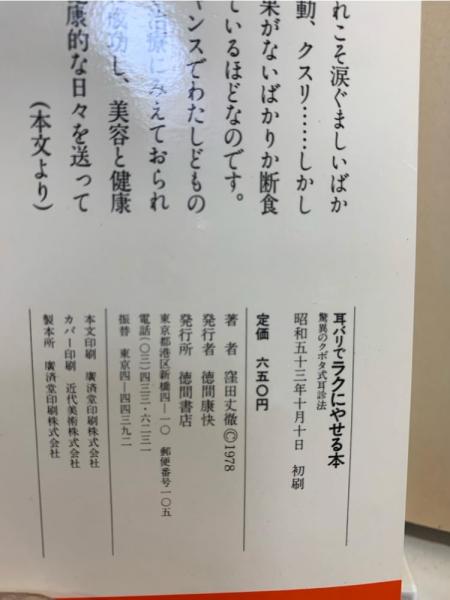 れこそ涙ぐましいばか
動、クスリ……しかし
果がないばかりか断食
ているほどなのです。
ャンスでわたしどもの
治療にみえておられ
成功し、美容と健康
康的な日々を送って
(本文より)
耳バリでラクにやせる本
驚異のクボタ式耳診法
昭和五十三年十月十日 初刷
定価 六五〇円
著者 窪田丈徹©1978
発行者 徳間康快
発行所 徳間書店
東京都港区新橋四―一〇 郵便番号一〇五
電話(〇三)四三三・六二三一
振替 東京四―四四三九二
本文印刷 廣済堂印刷株式会社
カバー印刷 近代美術株式会社
製本所 廣済堂印刷株式会社